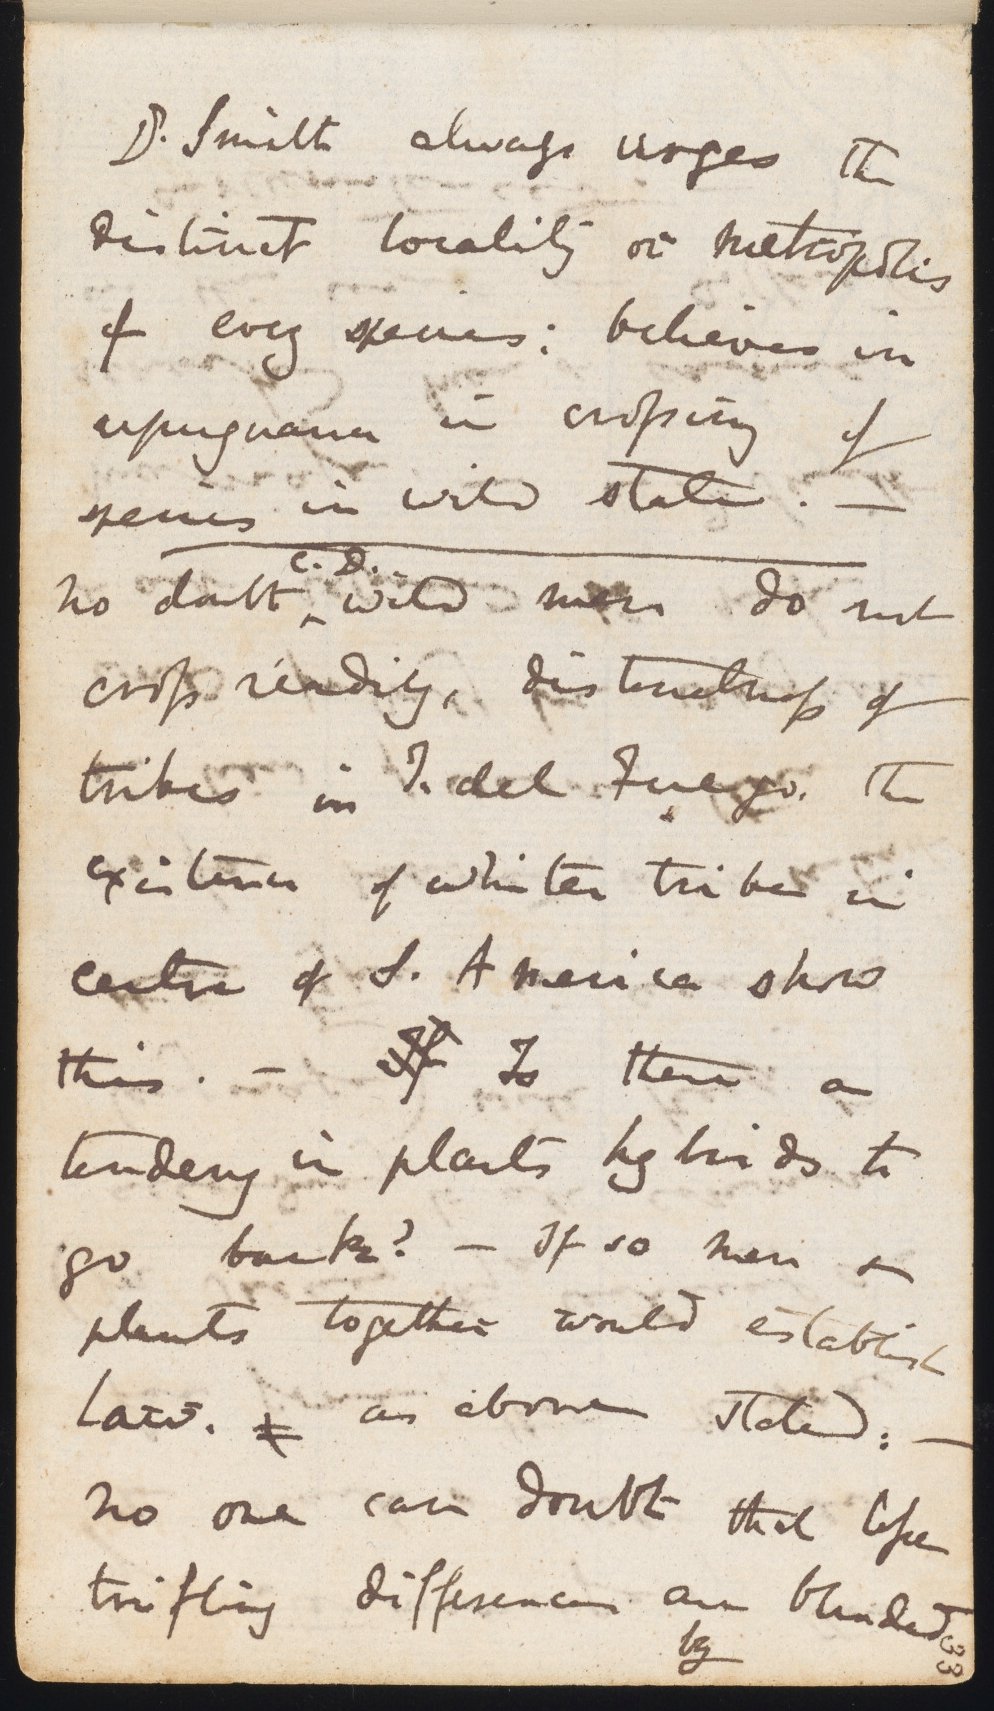 Dr. Smith always urges the
distinct locality or metropolis
of every species: believes in
repugnance in crossing of
species in wild state. —
no doubt C.D. wild men do not
cross readily, distinctness of
tribes in T. del Fuego. the
existence of whiter tribes in
centre of S. America show
this. — If Is there a
tendency in plants hybrids to
go back? — If so men &
plants together would establish
Law. & as above stated: —
no one can doubt that less
trifling differences are blended
by
33